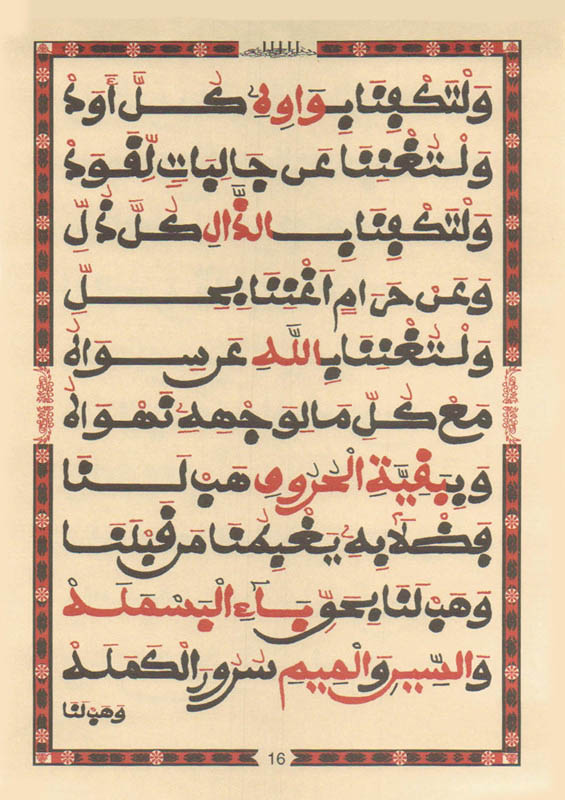 وَلْتَكْفِنَا بِوَاوِهِ كُلَّ أَوَدْ
وَلْتُغْنِنَا عَن جَالِبَاتٍ لِّقَوَدْ
وَلْتَكْفِنَا بِالذَّالِ كُلَّ ذُلِّ
وَعَن حَرَامٍ اَغْنِنَا بِحِلِّ
وَلْتُغْنِنَا بِاللَّهِ عَن سِوَاهُ
مَعْ كُلِّ مَا لِوَجْهِهِ نَهْوَاهُ
وَبِبَقِيَّةِ الْحُرُوفِ هَبْ لَنَا
فَضْلًا بِهِ يَغْبِطُنَا مَن قَبْلَنَا
وَهَبْ لَنَا بِحَقِّ بَاءِ الْبَسْمَلَهْ
وَالسِّينِ وَالْمِيمِ سُرُورَ الْكَمَلَهْ
وَهَبْ لَنَا
16